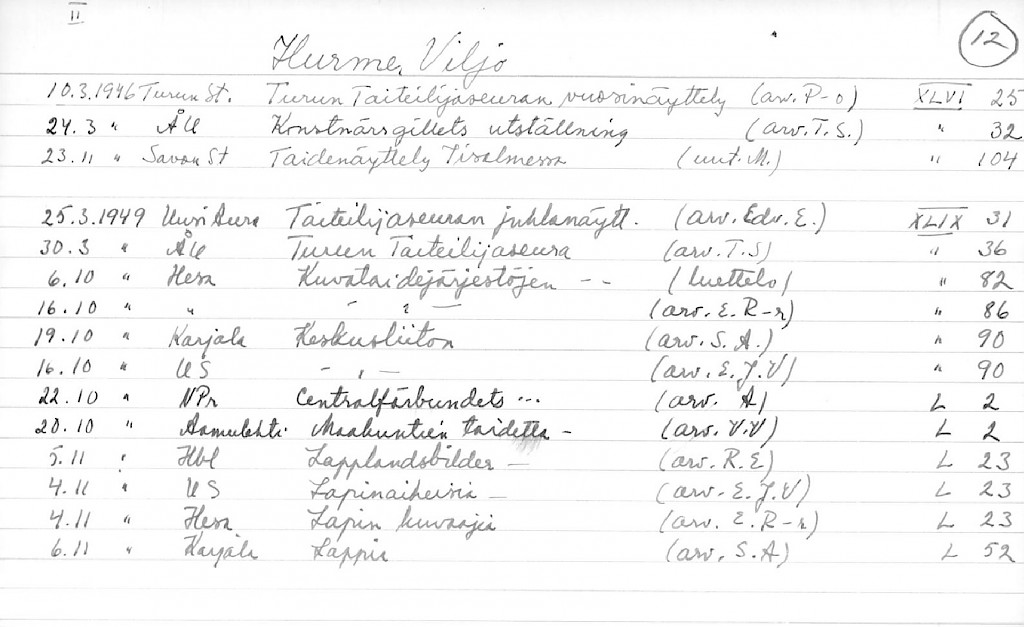 II
12
Hurme, Viljo
10.3.1946 Turun St. Turun Taiteilijaseuran vuosinäyttely (arv. P-o) XLVI 25
24.3 " ÅU Konstnärsgillets utställning (arv. T.S.) " 32
23.11 " Savon St Taidenäyttely Iisalmessa (uut. M.) " 104
25.3.1949 Uusi Aura Taiteilijaseuran juhlanäytt. (arv. Edv. E.) XLIX 31
30.3 " ÅU Turun Taiteilijaseura (arv. T.S) " 36
6.10 " Hesa Kuvataidejärjestöjen -- (luettelo) " 82
16.10 " " - " - (arv. E. R-r) " 86
19.10 " Karjala Keskusliiton (arv. S. A.) " 90
16.10 " US - " - (arv. E. J. V) " 90
22.10 " NPr Centralförbundets ... (arv. A) L 2
20.10 " Aamulehti Maakuntien taidetta - (arv. V.V) L 2
5.11 " Hbl Lapplandsbilder - (arv. R. E) L 23
4.11 " US Lapinaiheisia - (arv. E. J. V) L 23
4.11 " Hesa Lapin kuvaajia (arv. E. R-r) L 23
6.11 " Karjala Lappia (arv. S. A) L 52